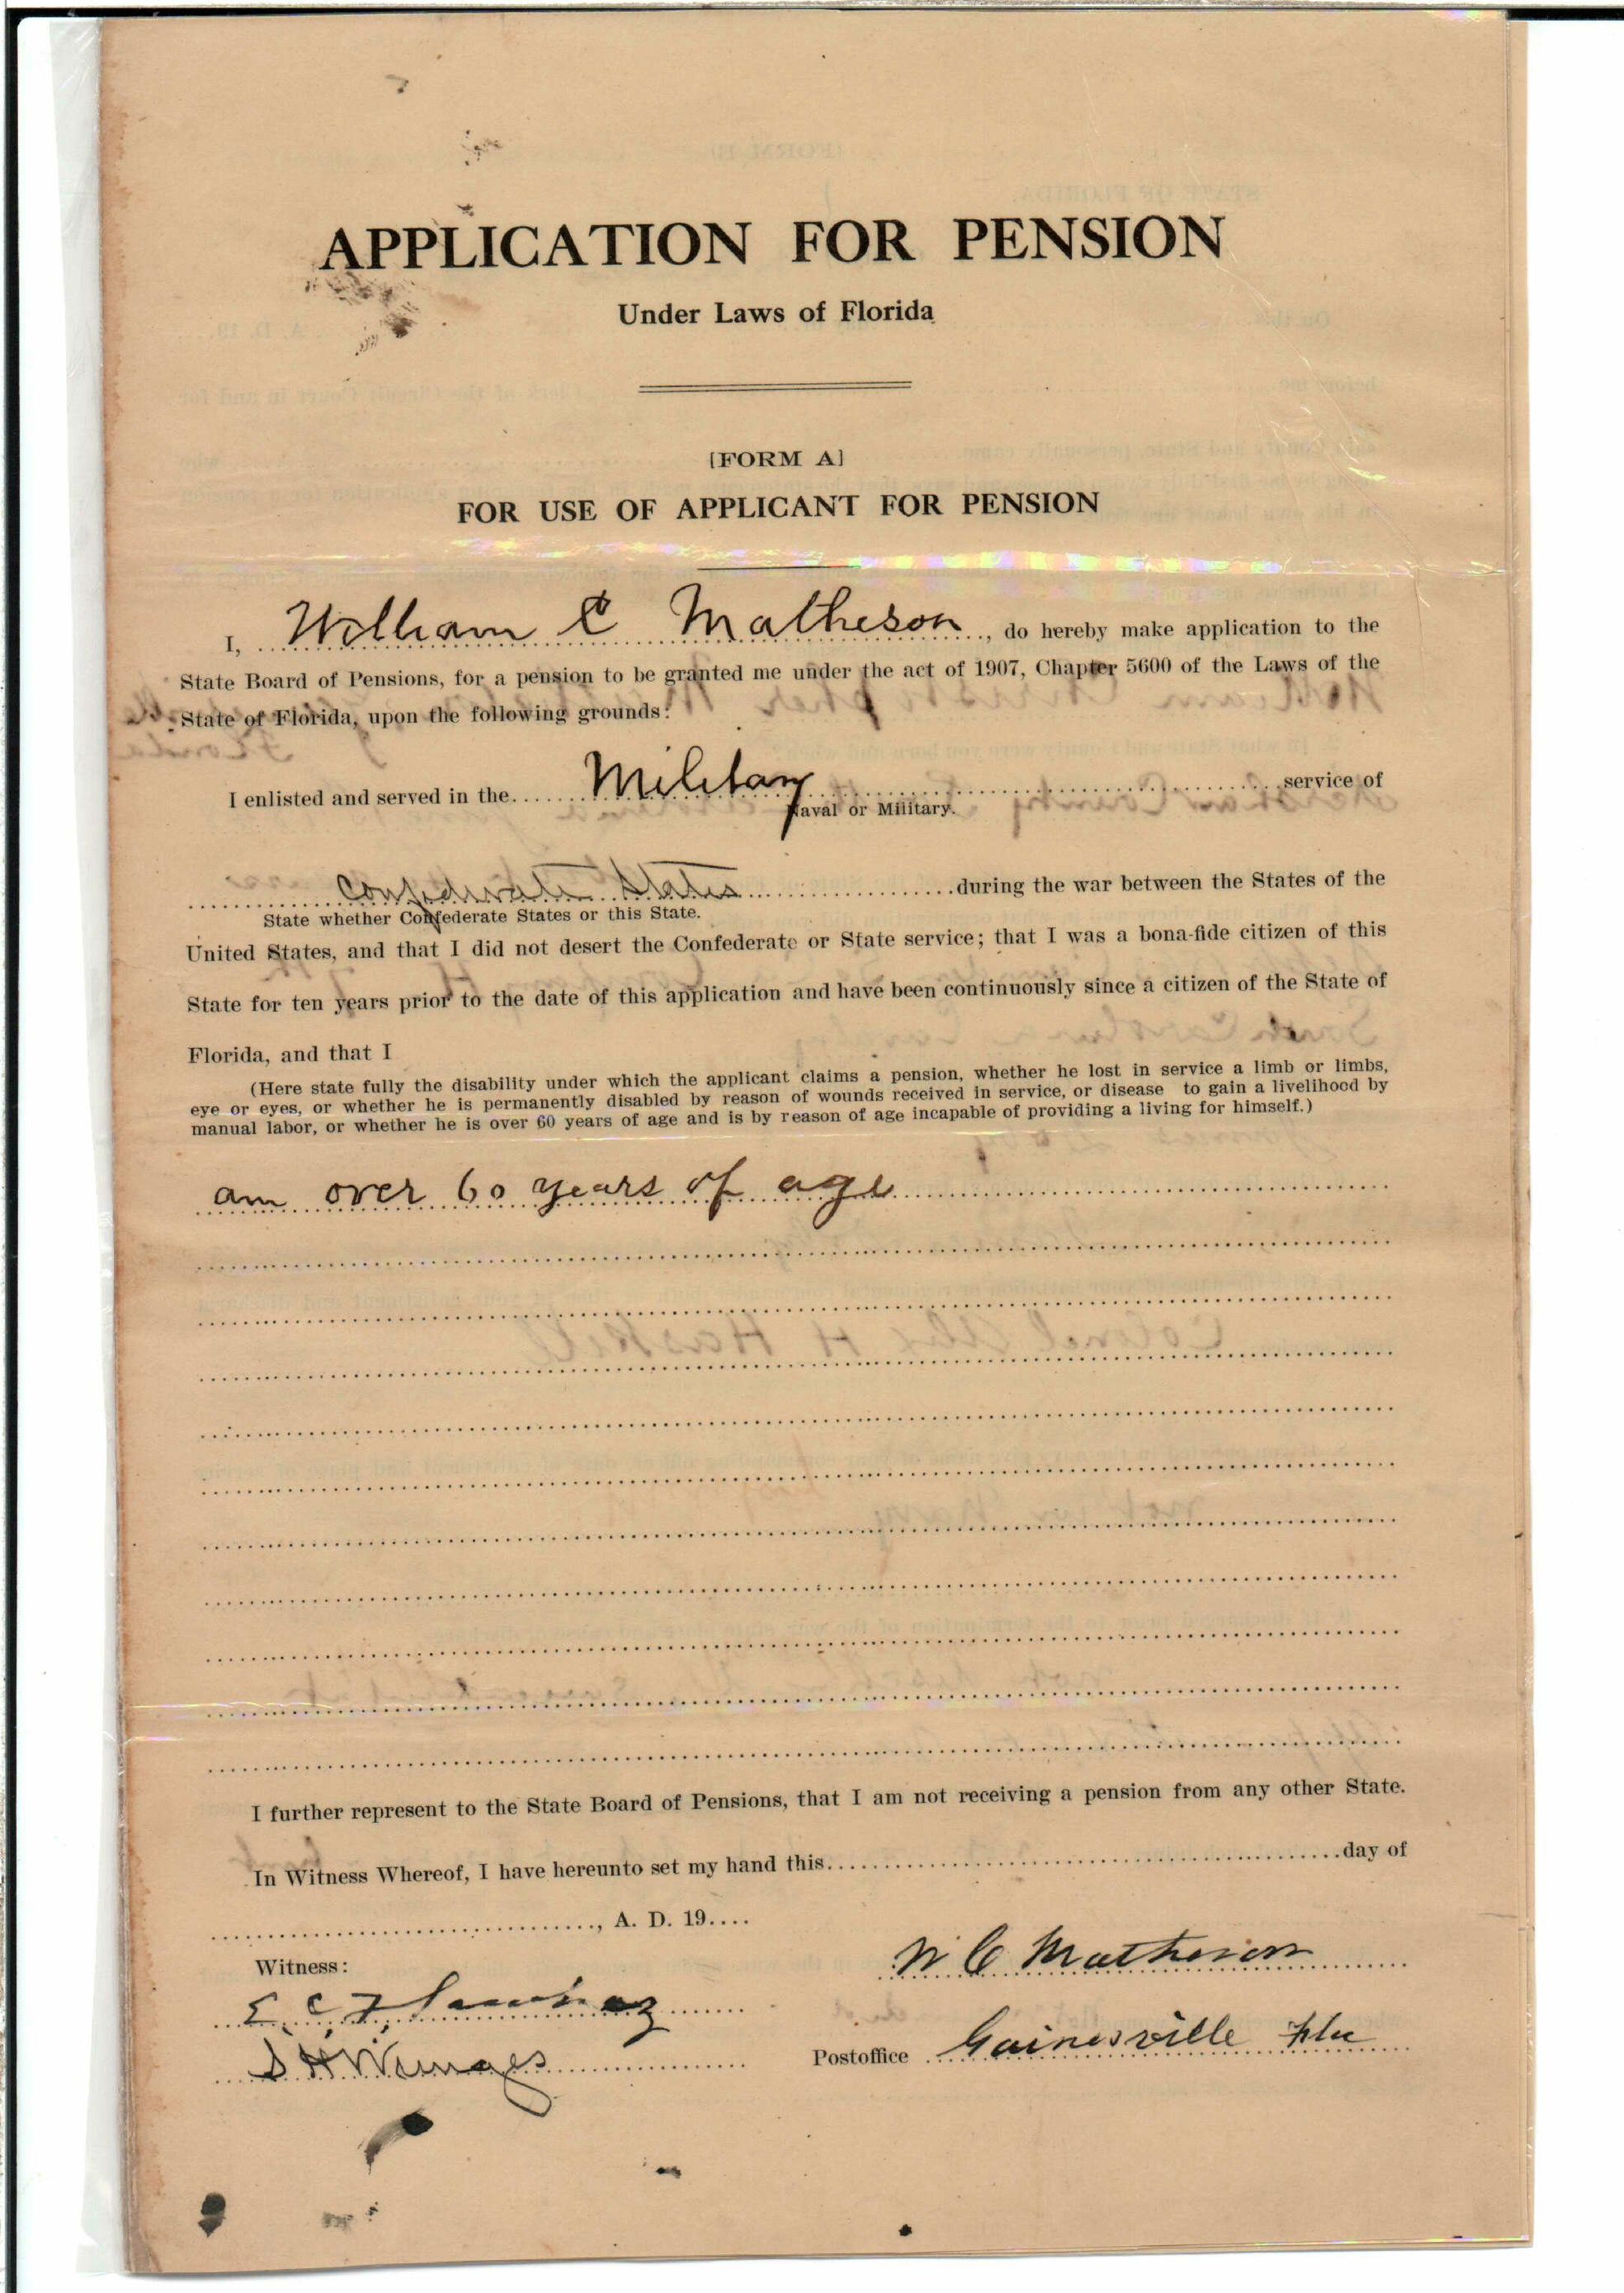 APPLICATION FOR PENSION
Under Laws of Florida
[FORM A]
FOR USE OF APPLICANT FOR PENSION
I, William C Matheson, do hereby make application to the
State Board of Pensions, for a pension to be granted me under the act of 1907, Chapter 5600 of the Laws of the
State of Florida, upon the following grounds:
I enlisted and served in the Military service of
Naval or Military.
Confederate States during the war between the States of the
State whether Confederate States or this State.
United States, and that I did not desert the Confederate or State service; that I was a bona-fide citizen of this
State for ten years prior to the date of this application and have been continuously since a citizen of the State of
Florida, and that I
(Here state fully the disability under which the applicant claims a pension, whether he lost in service a limb or limbs,
eye or eyes, or whether he is permanently disabled by reason of wounds received in service, or disease to gain a livelihood by
manual labor, or whether he is over 60 years of age and is by reason of age incapable of providing a living for himself.)
am over 60 years of age
I further represent to the State Board of Pensions, that I am not receiving a pension from any other State.
In Witness Whereof, I have hereunto set my hand this day of
, A. D. 19
Witness: W C Matheson
E. C. F.
S H
Postoffice Gainesville Fla